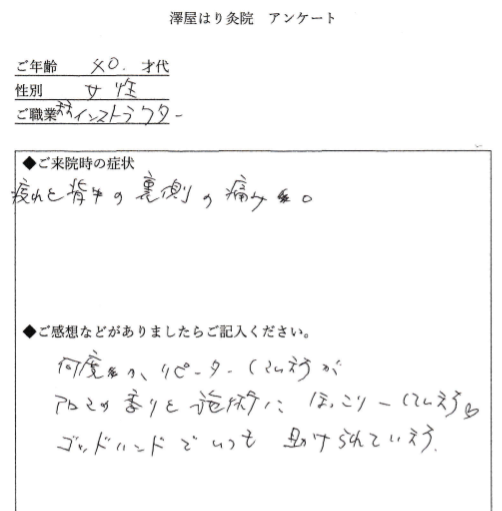 澤屋はり灸院 アンケート
ご年齢 40. 才代
性別 女性
ご職業 インストラクター
◆ご来院時の症状
疲れと背中の裏側の痛み。
◆ご感想などがありましたらご記入ください。
何度もの、リピーターしていますが
アロマの香りと施術に ほっこりーしています♡
ゴッドハンドでいつも 助けられています。